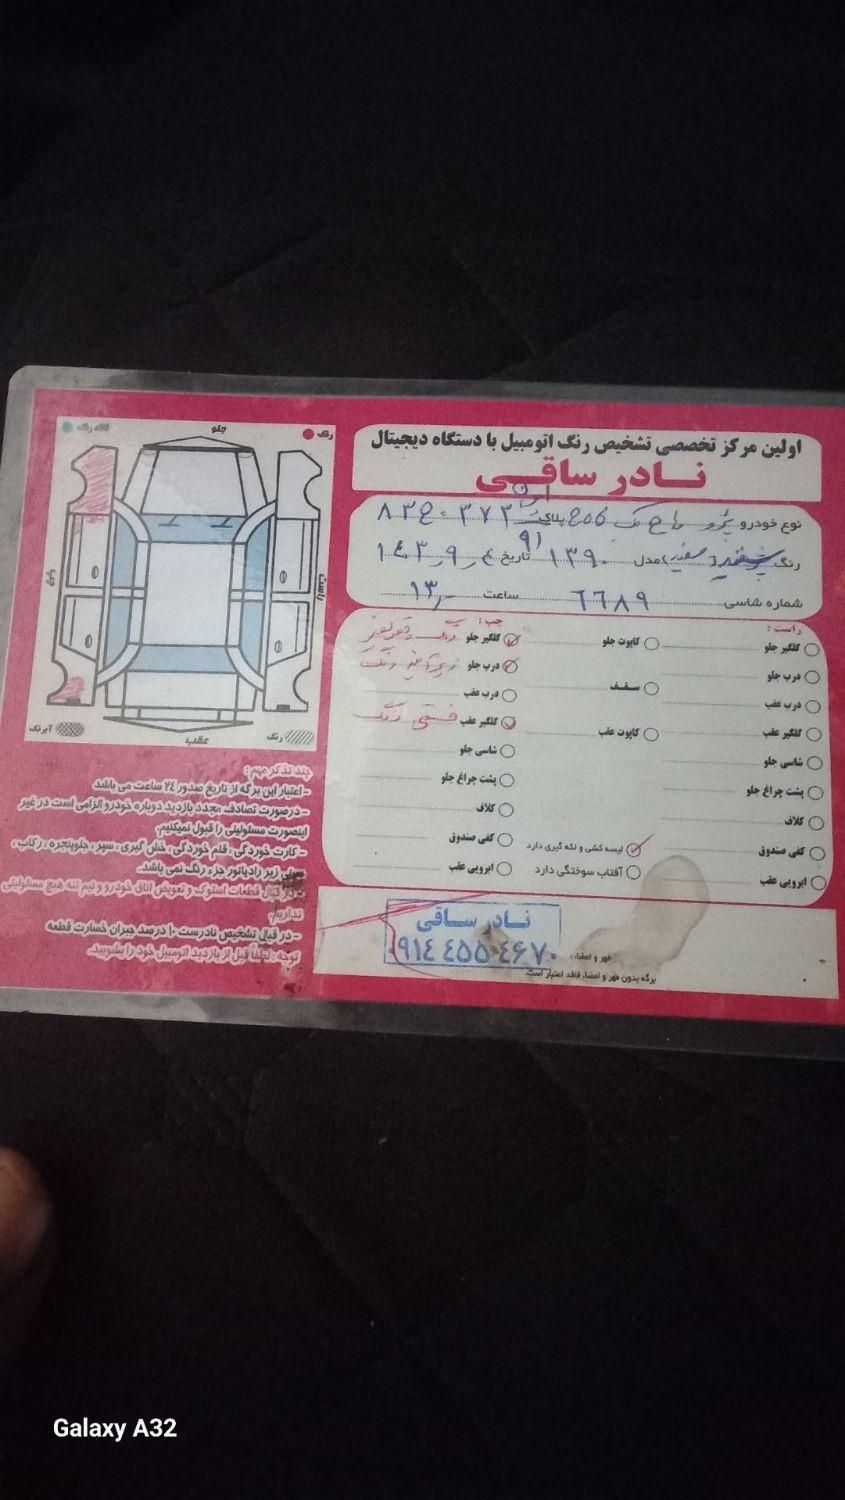 اولین مرکز تخصصی تشخیص رنگ اتومبیل با دستگاه دیجیتال
نــادر ساقــی
نوع خودرو پژو ۲۰۶ پلاک ۸۳ ج ۳۷۲ ایران ۹۱
رنگ سفید مدل ۱۳۹۰ تاریخ
شماره شاسی ۶۶۸۹ ساعت ۱۳
راست :
گلگیر جلو
درب جلو
درب عقب
گلگیر عقب
شاسی جلو
پشت چراغ جلو
کلاف
کفی صندوق
ابرویی عقب
کاپوت جلو
سـقـف
کاپوت عقب
لیسه کشی و لکه گیری دارد
آفتاب سوختگی دارد
چپ :
گلگیر جلو رنگ
درب جلو رنگ
درب عقب
گلگیر عقب رنگ
شاسی جلو
پشت چراغ جلو
کلاف
کفی صندوق
ابرویی عقب
مهر و امضاء :
برگه بدون مهر و امضاء فاقد اعتبار است.
نــادر ســاقی
۰۹۱٤ ٤۵۵ ٤۶۷۰
رنگ
جلو
فاقد رنگ
چپ
راست
آبرنگ
عقب
رنگ
چند تذکر مهم :
- اعتبار این برگه از تاریخ صدور ۲٤ ساعت می باشد
- درصورت تصادف مجدد بازدید دوباره خودرو الزامی است در غیر
اینصورت مسئولیتی را قبول نمیکنیم.
- کارت خوردگی ، قلم خوردگی، خش گیری ، سپر ، جلوپنجره ، رکاب ،
سینی زیر رادیاتور جزء رنگ نمی باشد.
- در قبال قطعات استوک و تعویض اتاق خودرو و نیم تنه هیچ مسئولیتی
نداریم.
- در قبال تشخیص نادرست ۱۰ درصد جبران خسارت قطعه
توجه : لطفا قبل از بازدید اتومبیل خود را بشویید.
Galaxy A32